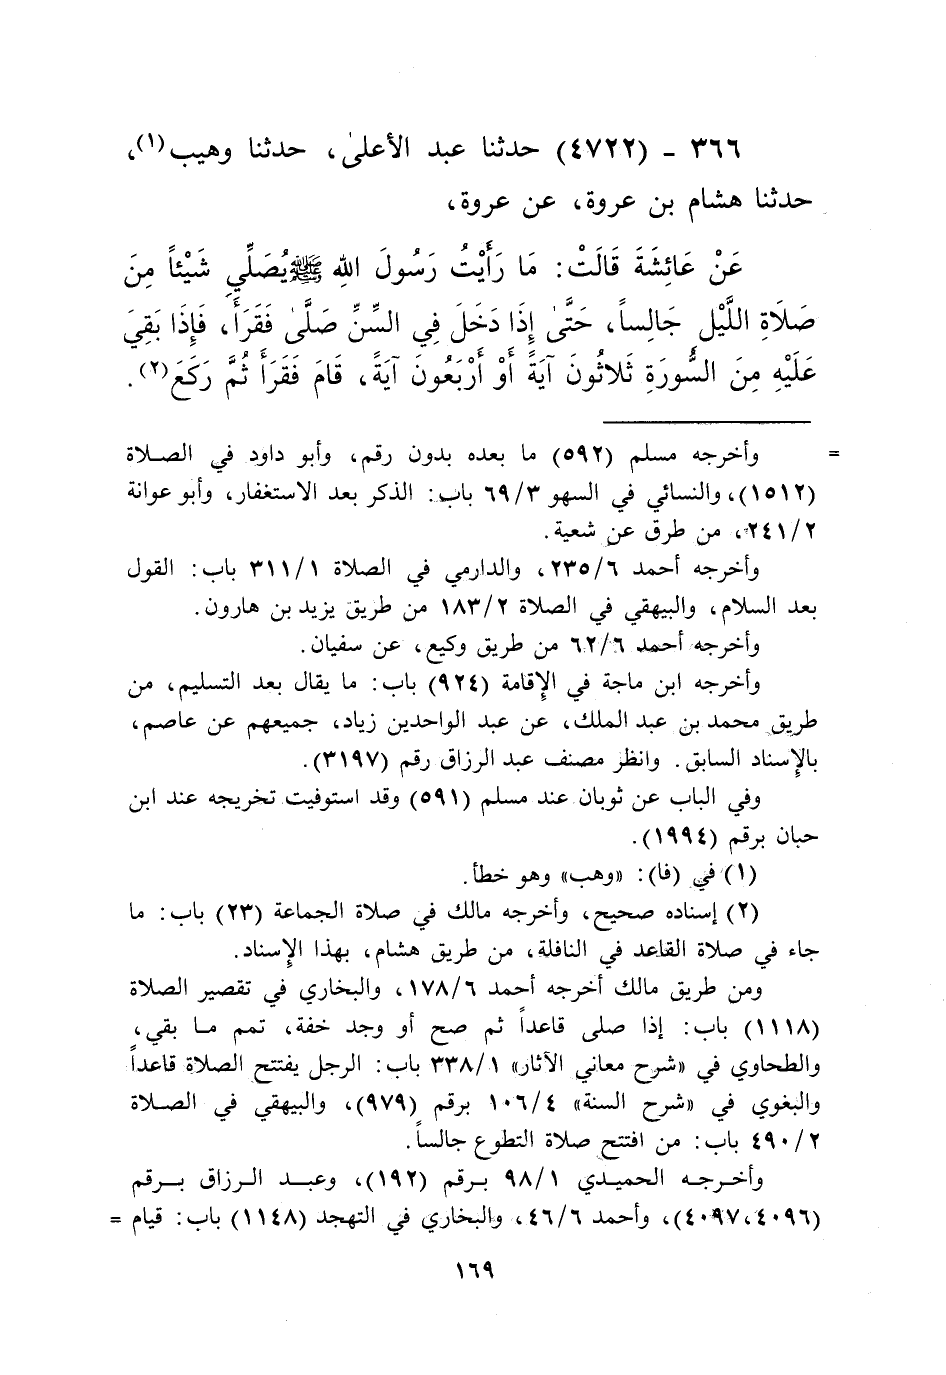 ٣٦٦ - (٤٧٢٢) حدثنا عبد الأعلىٰ، حدثنا وهيب(١)،
حدثنا هشام بن عروة، عن عروة،
عَنْ عَائِشَةَ قَالَتْ: مَا رَأَيْتُ رَسُولَ اللهِ ﷺ يُصَلِّي شَيْئاً مِنَ
صَلَاةِ اللَّيْلِ جَالِساً، حَتَّى إِذَا دَخَلَ فِي السِّنِّ صَلَّىٰ فَقَرَأَ، فَإِذَا بَقِيَ
عَلَيْهِ مِنَ السُّورَةِ ثَلَاثُونَ آيَةً أَوْ أَرْبَعُونَ آيَةً، قَامَ فَقَرَأَ ثُمَّ رَكَعَ(٢).
= وأخرجه مسلم (٥٩٢) ما بعده بدون رقم، وأبو داود في الصلاة
(١٥١٢)، والنسائي في السهو ٦٩/٣ باب: الذكر بعد الاستغفار، وأبو عوانة
٢٤١/٢، من طرق عن شعبة.
وأخرجه أحمد ٢٣٥/٦، والدارمي في الصلاة ٣١١/١ باب: القول
بعد السلام، والبيهقي في الصلاة ١٨٣/٢ من طريق يزيد بن هارون.
وأخرجه أحمد ٦٢/٦ من طريق وكيع، عن سفيان.
وأخرجه ابن ماجة في الإقامة (٩٢٤) باب: ما يقال بعد التسليم، من
طريق محمد بن عبد الملك، عن عبد الواحدين زياد، جميعهم عن عاصم،
بالإسناد السابق. وانظر مصنف عبد الرزاق رقم (٣١٩٧).
وفي الباب عن ثوبان عند مسلم (٥٩١) وقد استوفيت تخريجه عند ابن
حبان برقم (١٩٩٤).
(١) في (فا): «وهب» وهو خطأ.
(٢) إسناده صحيح، وأخرجه مالك في صلاة الجماعة (٢٣) باب: ما
جاء في صلاة القاعد في النافلة، من طريق هشام، بهذا الإسناد.
ومن طريق مالك أخرجه أحمد ١٧٨/٦، والبخاري في تقصير الصلاة
(١١١٨) باب: إذا صلى قاعداً ثم صح أو وجد خفة، تمم ما بقي،
والطحاوي في «شرح معاني الآثار» ٣٣٨/١ باب: الرجل يفتتح الصلاة قاعداً
والبغوي في «شرح السنة» ١٠٦/٤ برقم (٩٧٩)، والبيهقي في الصلاة
٤٩٠/٢ باب: من افتتح صلاة التطوع جالساً.
وأخرجه الحميدي ٩٨/١ برقم (١٩٢)، وعبد الرزاق برقم
(٤٠٩٧،٤٠٩٦)، وأحمد ٤٦/٦، والبخاري في التهجد (١١٤٨) باب: قيام =
١٦٩